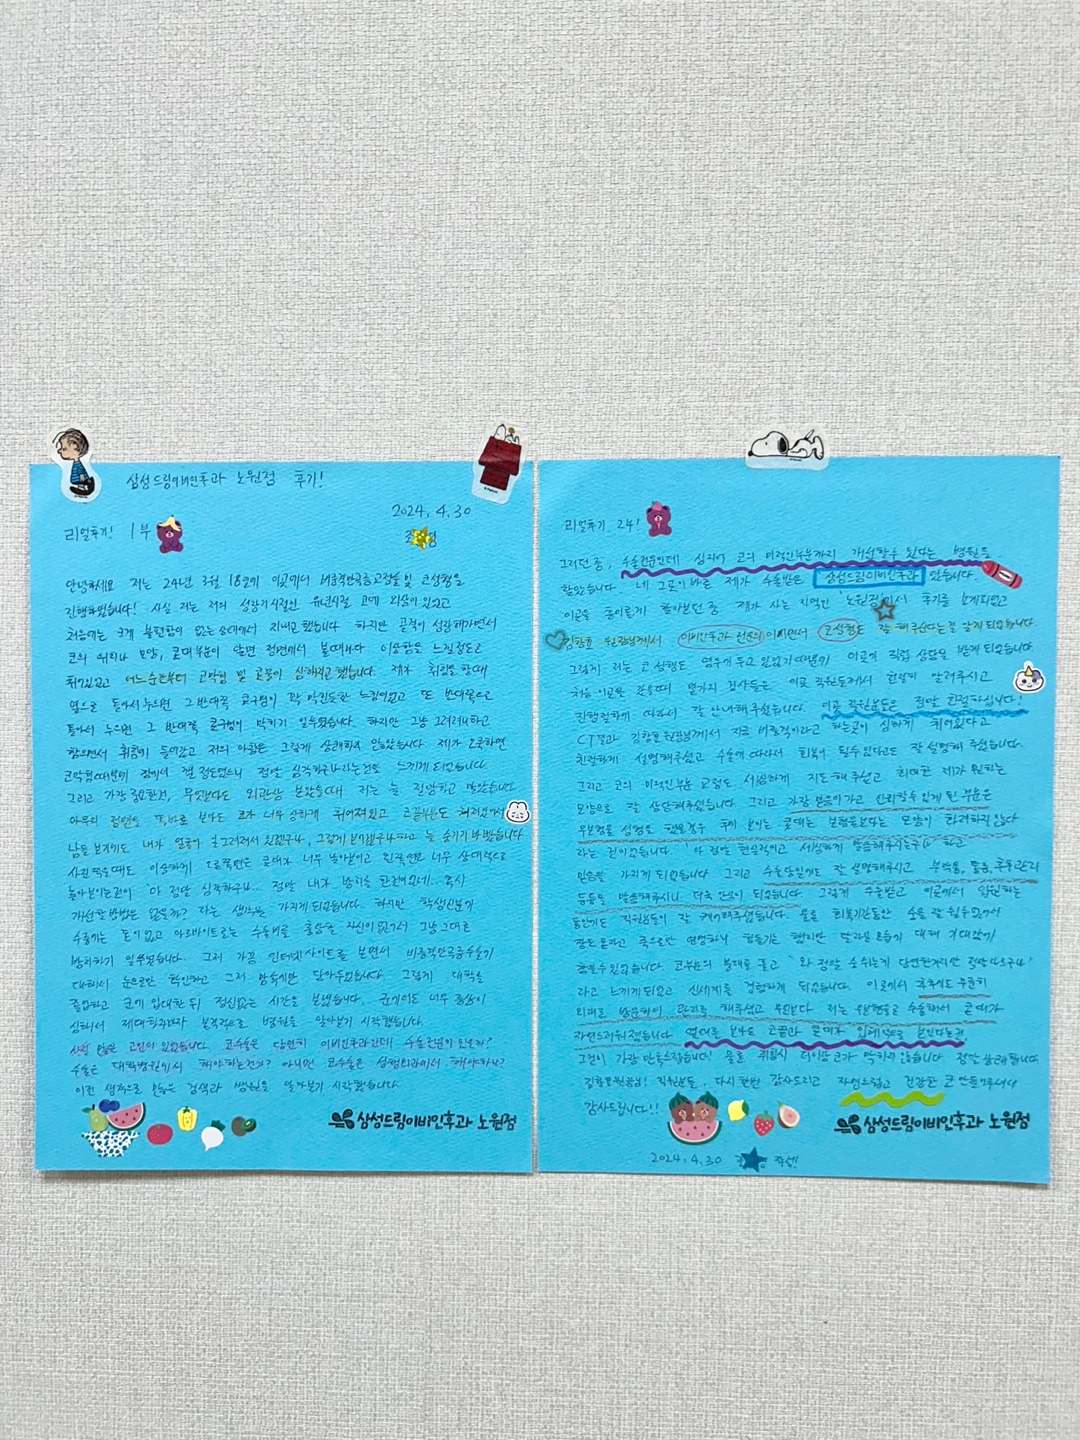 삼성드림이비인후과 노원점 후기!
2024. 4. 30
리얼후기! 1부
안녕하세요 저는 24년 3월 18일에 이곳에서 비중격만곡증교정술 및 코성형을
진행하였습니다! 사실 저는 저의 성장기시절인 유년시절 코에 외상이 있었고
처음에는 크게 불편함이 없는 상태에서 지내곤했습니다 하지만 골격이 성장해가면서
코의 위치나 모양, 콧대부분이 앞면 정면에서 볼때마다 이상함을 느낄정도로
휘어있었고 어느순간부터 코막힘 및 콧물이 심해지곤했습니다. 제가 취침을 할때
옆으로 돌아서누우면 그 반대쪽 콧구멍이 꽉 막힌듯한 느낌이었고 또 반대쪽으로
돌아서 누우면 그 반대쪽 콧구멍이 막히기 일쑤였습니다. 하지만 그냥 그러려니하고
참으면서 취침이 들어갔고 저의 아침은 그렇게 상쾌하지 않았습니다 제가
코막힘때문에 잠에서 깰 정도였으니 정말 심각하구나라는것을 느끼게 되었습니다.
그리고 가장 중요한건, 무엇보다도 외관상 보았을때 저는 늘 절망하고 말았습니다
아무리 정면을 똑바로 보아도 코가 너무 심하게 휘어져있고 코끝마저도 쳐져있어서
남들 보기에도 내가 얼굴이 찌그러져서 있겠구나, 그렇게 보이겠구나하고 늘 숨기기 바빴습니다
사진 찍을때도 이상하게 오른쪽면은 콧대가 너무 높아보이고 왼쪽면은 너무 상대적으로
높아보이는것이 '아 정말 심각하구나... 정말 내가 방치를 한것이었네... 혹시
개선할방법은 없을까? 라는 생각을 가지게 되었습니다. 하지만 학생신분에
수중에는 돈이없고 아르바이트로는 수술비를 충당할 자신이 없기에 그냥 그대로
방치하기 일쑤였습니다. 그저 가끔 인터넷 사이트를 보면서 비중격만곡증수술기
대해서 눈으로만 확인하고 그저 방속기만 닫아두었습니다. 그렇게 대학을
졸업하고 군에 입대한 뒤 정신없는 시간을 보냈습니다. 군에서도 너무 증상이
심해서 제대하자마자 본격적으로 병원을 알아보기 시작했습니다.
사실 많은 고민이 있었습니다. 코수술은 당연히 이비인후과인데 수술전문이 있을까?
수술은 대학병원에서 해야하는건가? 아니면 코수술은 성형외과에서 해야하나?
이런 생각으로 수많은 검색과 병원을 알아보기 시작했습니다.
삼성드림이비인후과 노원점
리얼후기 2부!
그러던 중, 수술전문인데 심지어 코의 미적인부분까지 개선할수 있다는 병원을
찾았습니다. 네 그곳이 바로 제가 수술받은 삼성드림이비인후과 였습니다.
이곳을 흥미롭게 찾아보던 중 제가 사는 지역인 '노원점'에서 후기를 보게되었고
김항호 원장님께서 이비인후과 전문의이시면서 코성형도 잘 해주신다는걸 알게 되었습니다.
그렇게 저는 코 성형도 염두에 두고 있었기 때문에 이곳에 직접 상담을 받게 되었습니다.
처음 이곳을 갔을때 몇가지 검사들은 이곳 직원분께서 친절히 알려주시고
진행절차에 따라서 잘 안내해주셨습니다. 이곳 직원분들은 정말 친절하십니다!
CT결과 김항호원장님께서 지금 비중격이라고 하는곳이 심하게 휘어있다고
친절하게 설명해주셨고 수술에 따라서 회복이 될수있다고도 잘 설명해 주셨습니다.
그리고 코의 미적인부분 교정도 세심하게 지도해 주셨고 최대한 제가 원하는
모양으로 잘 상담해주셨습니다. 그리고 가장 믿음이 가고 신뢰할수 있게 된 부분은
무보형물 성형을 했을경우 후에 보이는 콧대는 보형물보다는 모양이 화려하진 않다
라는 것이었습니다. '아 정말 현실적이고 세심하게 말씀해주시는구나' 하고
믿음을 가지게 되었습니다. 그리고 수술당일에도 잘 설명해주시고 부작용, 통증, 후주관리
등등을 말씀해주시니 더욱 안심이 되었습니다. 그렇게 수술받고 이곳에서 입원하는
동안에도 직원분들이 잘 케어해주셨습니다. 물론 회복기간동안 숨을 잘 쉴수없어서
잠도 못자고 죽으로만 연명하니 힘들기는 했지만 달라질 모습에 대해 기대감에
참을수있었습니다 코부목의 붕대를 풀고 '와 정말 숨쉬는게 당연한거지만 정말 다르구나'
라고 느끼게되었고 신세계를 경험하게 되었습니다. 이곳에서 후에도 꾸준히
외래로 방문하여 관리를 해주셨고 무엇보다 저는 무보형물로 수술해서 콧대가
자연스러워졌습니다. 옆태를 보아도 코끝과 콧대가 입체적으로 보인다는점
그것이 가장 만족스럽습니다! 물론 취침시 더이상코가 막히지 않습니다. 정말 상쾌합니다.
김항호원장님! 직원분들, 다시 한번 감사드리고 자연스럽고 건강한 코 만들어주셔서
감사드립니다!!
삼성드림이비인후과 노원점
2024. 4. 30 작성!!